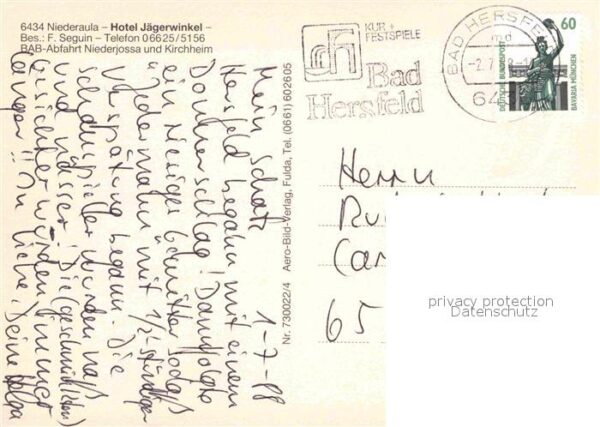 6434 Niederaula – Hotel Jägerwinkel –
Bes.: F. Seguin – Telefon 06625/5156
BAB-Abfahrt Niederjossa und Kirchheim
1-7-88
Mein Schatz
Hersfeld begann mit einem
Donnerschlag! Dann folgte
ein riesiges Gewitter, sodaß
"Jedermann" mit 1/2-stündiger
Verspätung begann. Die
Schauspieler wurden naß
und nässer! Die (geschminkten)
Gesichter wurden immer
länger!! In Liebe, Deine Helga
Nr. 730022/4 Aero-Bild-Verlag, Fulda, Tel. (0661) 602605
KUR +
FESTSPIELE
Bad
Hersfeld
BAD HERSFE
md
-2.7
64
60
DEUTSCHE BUNDESPOST
BAVARIA MÜNCHEN
Herrn
65
privacy protection
Datenschutz